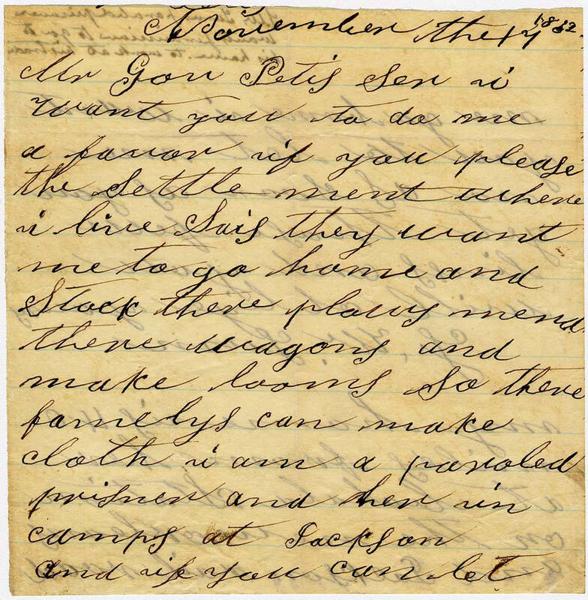 November the 17 1862.
Mr Gov Petis Ser i
want you to do me
a favor if you please
the Settle ment where
i live Sais they want
me to go home and
Stock there plows mend
there wagons and
make looms So there
famelys can make
cloth i am a paroled
prisner and her in
camps at Jackson
and if you can let